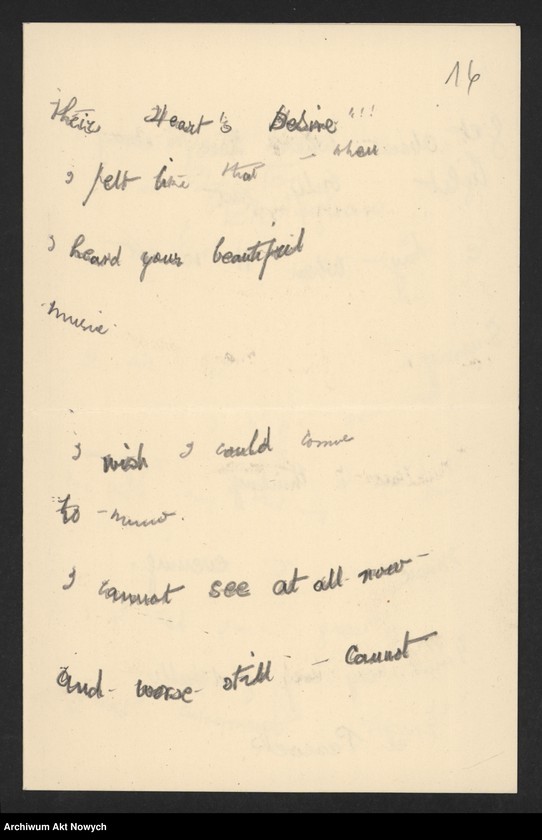 16
their Heart's Desire"!!!
I felt like that – when
I heard your beautiful
music.
I wish I could come
to
I cannot see at all now –
And worse still – Cannot
Archiwum Akt Nowych